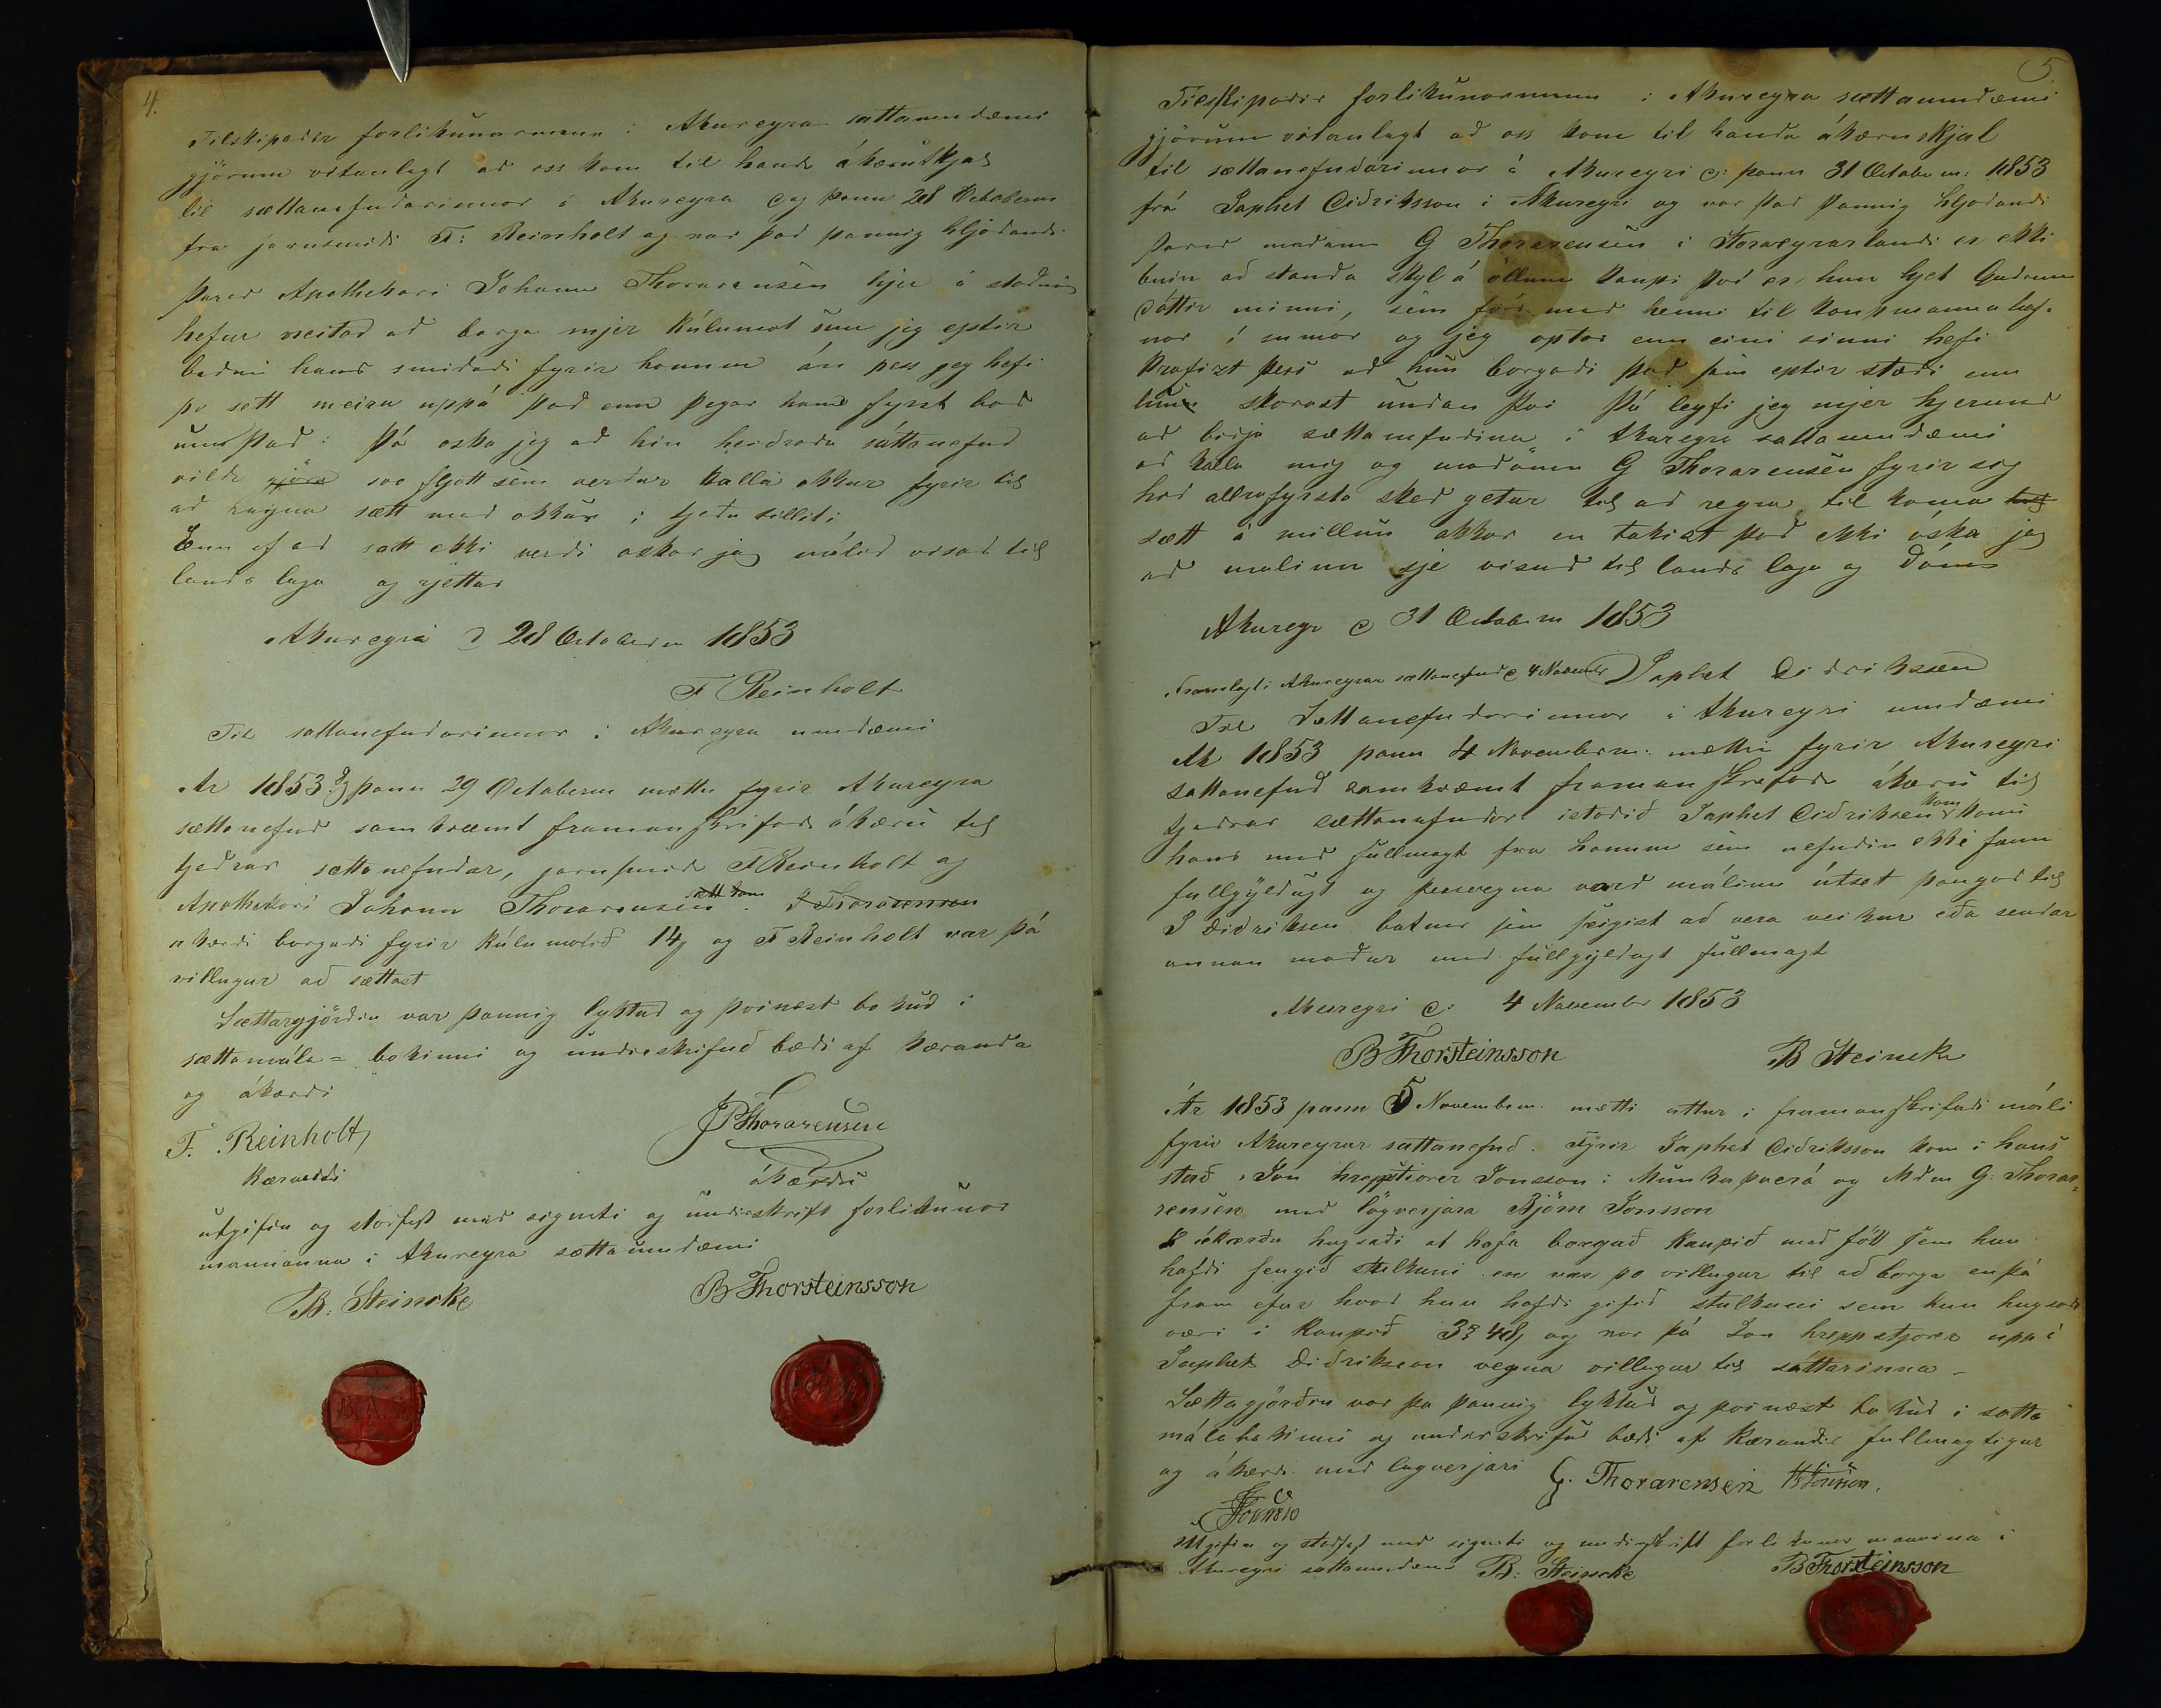 4.
Tilskipadir forlikunarmenn i Akureyra sattaumdæmi
gjörum vitanlegt ad oss kom til handa ákæruskjal
til sættanefndarinnar á Akureyra dag þann 28 Octoberm
fra jarnsmidi F: Reinholt og var þad þannig hljódandi
Þared Apothekari Johann Thorarensen hjer á stadnum
hefur neitad ad borga mjer kúlumot sem jeg eptir
bedni hans smidadi fyrir honum án þess jeg hefi
þo sett meira uppá þad enn þegar hann fyrst bad
um þad: Þá oska jeg ad hin heidrada sáttanefnd
vildi gjöra svo fljott sem verdur kalla okkur fyrir til
ad reyna sætt med okkur i tjedu tilliti
Enn ef ad satt ekki verdi oskar jeg málid visad til
lands laga og rjettar
Akureyri d 28 October 1853
F Reinholt
Til sattanefndarinnar i Akureyra umdæmi
Ár 1853 dag þann 29 Octoberm mættu fyrir Akureyra
sættanefnd samkvæmt framanskrifadri ákæru til
tjedrar sættanefndar, jarnsmid F Reinholt og
Apothekari Johann Thorarensen sætt kom J Thorarensen
akærdi borgadi fyrir kúlumotid 14 og F Reinholt var þá
villugur ad sættast
Sættargjördin var þannig lyktud og þvinæst bokud i
sættamála= bokinni og undirskrifud bædi af kæranda
og ákærdi
F. Reinholt JPThorarensen
kærandi ákærdi
utgifin og stadfest med signeti og undirskrift forlikunar
mannanna i Akureyra sættaumdæmi
B: Steincke BThorsteinsson
B.A.S
5.
Tilskipadir forlikunarmenn i Akureyra sættaumdæmi
gjörum vitanlegt ad oss kom til handa ákæruskjal
til sættanefndarinnar á Akureyri d: þann 31 Octoberm: 1853
frá Japhet Didriksson i Akureyri og var þad þannig hljodandi
Þared madame G Thorarensen i Storaeyrarlandi er ekki
buin ad standa skyl á öllum kaupi því er hun ljet Gudrunu
dóttir minni, sem fór med henni til kaupmannahaf-
nar i sumar og jeg optar enn eini sinni hefi
krafist þess ad hún borgadi þad sem eptir stædi enn
hún skorast undan því Þá leyfi jeg mjer hjermed
ad bidja sættanefndina i Akureyra sattaumdæmi
ad kalla mig og madömu G Thorarensen fyrir sig
hid allrafyrsta sked getur til ad reyna til koma til
sætt á millum okkar en takist þad ekki óska jeg
ad malinu sje visad til lands laga og dóms
Akureyri d 31 Octoberm 1853
Framlagt i Akureyrar sættanefnd d 4 November Japhet Didriksson
Til Sættanefndarinnar i Akureyri umdæmi
Ár 1853 þann 4 Novemberm: mætti fyrir Akureyri
sattanefnd samkvæmt framanskrifadri ákæru til
tjedrar sættanefndar istadid Japhet Didriksens kom kona
hans med fullmagt fra honum sem nefndin ekki fann
fullgyldugt og þessvegna vard málinu útset þangad til
J Didriksen batnar sem seigist ad vera veikur eda sendar
annan madur med fullgyldugt fullmagt
Akureyri d: 4 November 1853
BThorsteinsson B Steincke
Ár 1853 þann 5 Novemberm. mætti attur i framanskrifadi máli
fyrir Akureyrar sattanefnd. Fyrir Japhet Didriksson kom i hans
stad Jon hreppstiorer Jonsson i Múnkaþverá og Mdm G: Thorar=
rensen med lögverjara Björn Jonsson
ákærda hugsadi at hafa borgad kaupid med föt sem hun
hafdi fengid stulkuni en var þo villugur til ad borga enþá
fram efur hvad hun hafdi gifid stulkuni sem hun hugsadi
væri i kaupid 3 48 og var þá Jon hreppstjorer uppá
Japhets Didriksson vegna villugur til sáttarinna -
Sættagjördin var þa þannig lyktud og þvinæst bokud i satta
málabokinni og undirskrifud bædi af kærandis fullmagtigur
og ákærdi med lagverjari G. Thorarensen BJónsson.
JJonsson
Utgifin og stadfest med signeti og undirskrift forlikunar mannina i
Akureyri sattaumdæmi B: Steincke BThorsteinsson